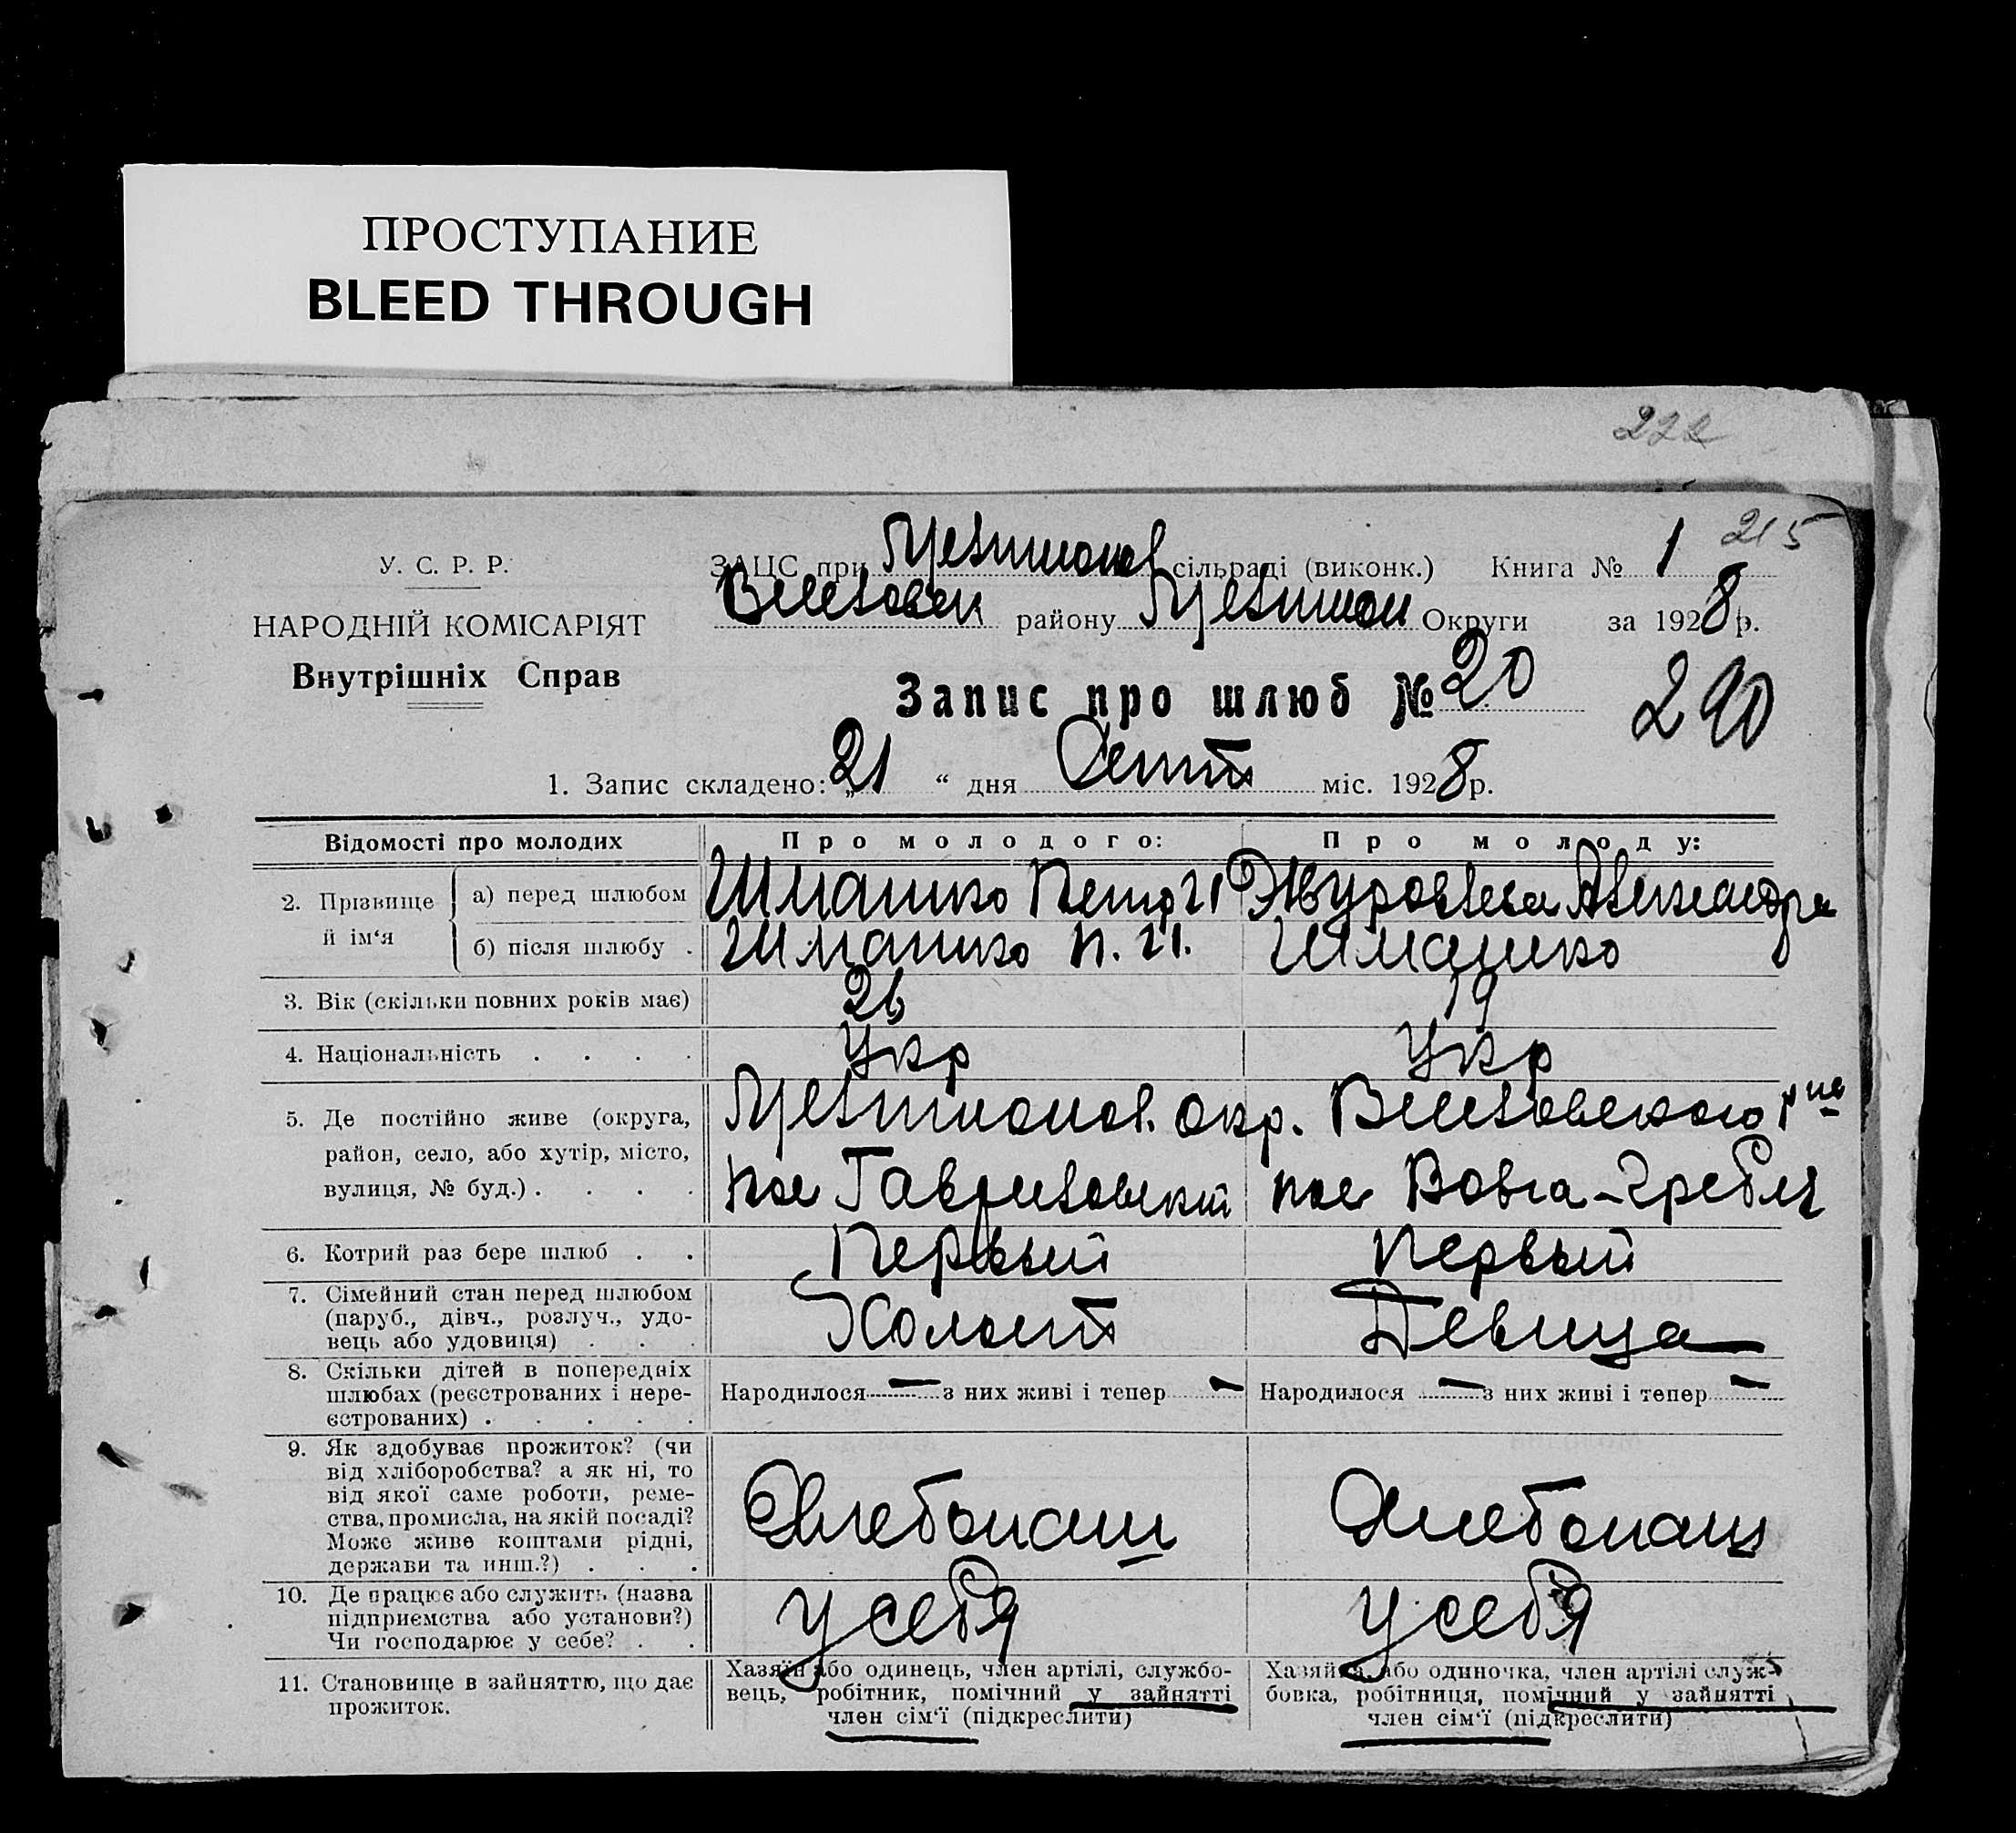 ПРОСТУПАНИЕ
BLEED THROUGH
222
215
У. С. Р. Р.
НАРОДНІЙ КОМІСАРІЯТ
Внутрішніх Справ
ЗАЦС при сільраді (виконк.) Книга № 1
району Округи за 1928 р.
Запис про шлюб № 20
290
1. Запис складено: „21“ дня Сент міс. 1928 р.
Відомості про молодих Про молодого: Про молоду:
2. Прізвище й ім‘я
а) перед шлюбом Шмашко Александра
б) після шлюбу . Шмашко П. И. Шмашко
3. Вік (скільки повних років має) 26 19
4. Національність . . . . Укр Укр
5. Де постійно живе (округа, район, село, або хутір, місто, вулиця, № буд.) . . . .
окр.
пос пос Вовча-Гребля
6. Котрий раз бере шлюб . . Первый Первый
7. Сімейний стан перед шлюбом (паруб., дівч., розлуч., удовець або удовиця) . . . Холост Девица
8. Скільки дітей в попередніх шлюбах (реєстрованих і нереєстрованих) . . . . .
Народилося — з них живі і тепер — Народилося — з них живі і тепер —
9. Як здобуває прожиток? (чи від хліборобства? а як ні, то від якої саме роботи, ремества, промисла, на якій посаді? Може живе коштами рідні, держави та инш.?) . . . Хлебопаш Хлебопаш
10. Де працює або служить (назва підприємства або установи?) Чи господарює у себе? . . у себя у себя
11. Становище в зайняттю, що дає прожиток.
Хазяїн або одинець, член артілі, службовець, робітник, помічний у зайнятті член сім‘ї (підкреслити)
Хазяйка, або одиночка, член артілі службовка, робітниця, помічний у зайнятті член сім‘ї (підкреслити)